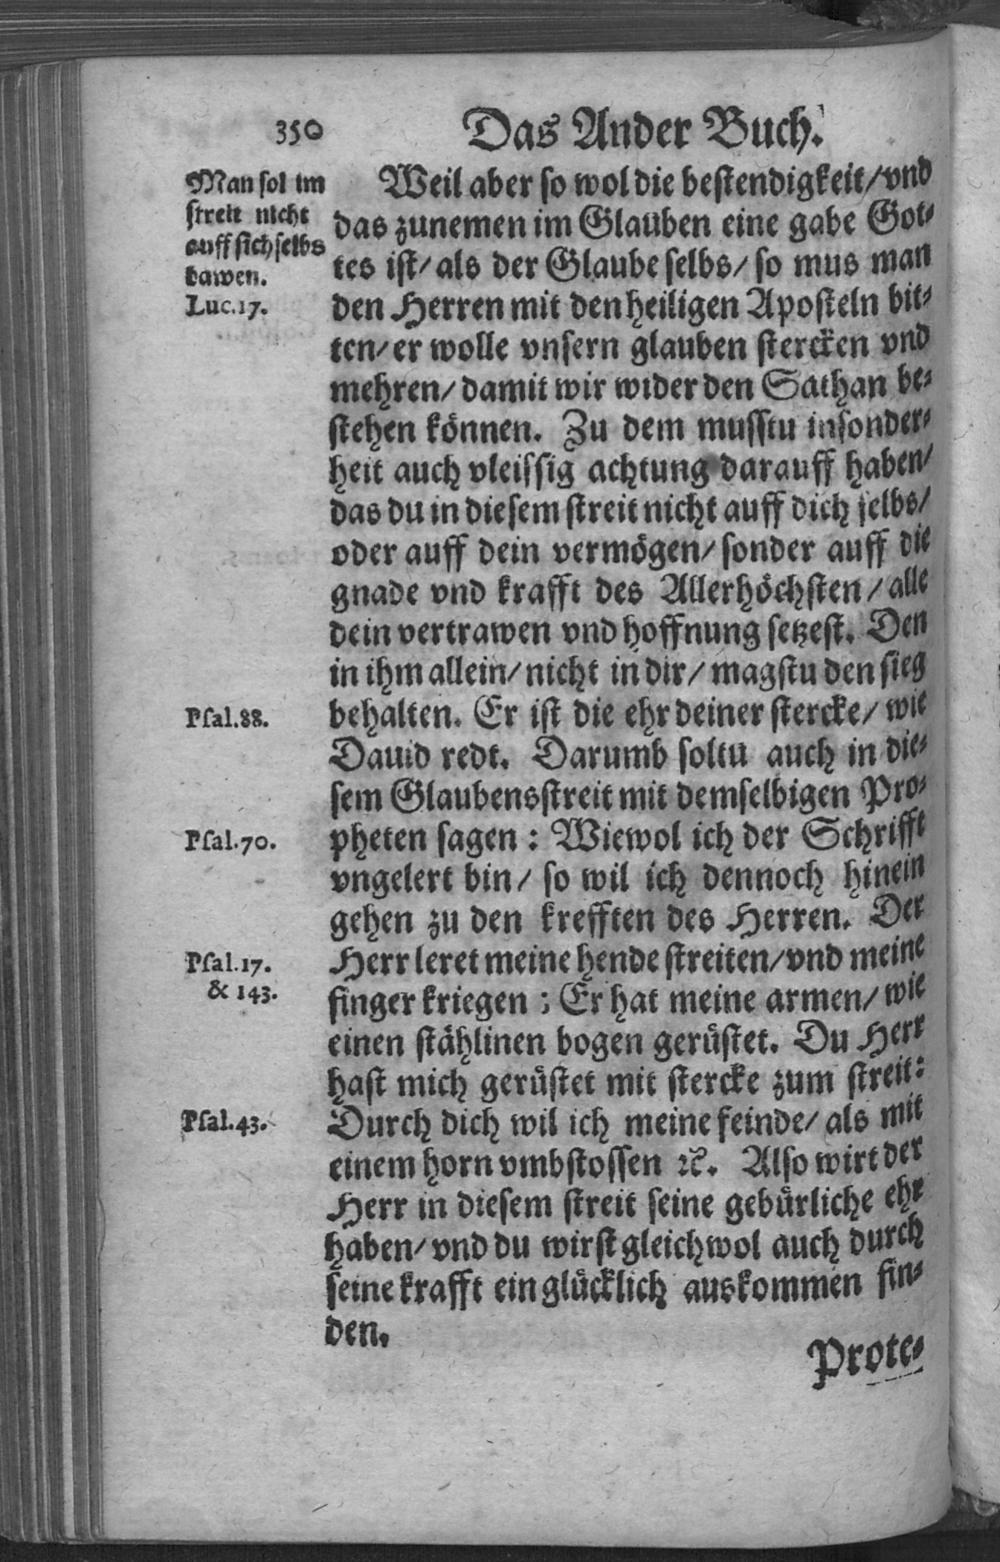 350
Das Ander Buch.
Man sol im
streit nicht
auff sich selbs
bawen.
Luc.17.
Weil aber so wol die bestendigkeit/vnd
das zunemen im Glauben eine gabe Got⸗
tes ist/als der Glaube selbs/so mus man
den Herren mit den heiligen Aposteln bit⸗
ten/er wolle vnsern glauben stercken vnd
mehren/damit wir wider den Sathan be⸗
stehen können. Zu dem musstu insonder⸗
heit auch vleissig achtung darauff haben/
das du in diesem streit nicht auff dich selbs/
oder auff dein vermögen/sonder auff die
gnade vnd krafft des Allerhöchsten/alle
dein vertrawen vnd hoffnung setzest. Den
in ihm allein/nicht in dir/magstu den sieg
Psal.88.
behalten. Er ist die ehr deiner stercke/wie
Dauid redt. Darumb soltu auch in die⸗
sem Glaubensstreit mit demselbigen Pro⸗
Psal.70.
pheten sagen: Wiewol ich der Schrifft
vngelert bin/so wil ich dennoch hinein
gehen zu den krefften des Herren. Der
Psal.17.
& 143.
Herr leret meine hende streiten/vnd meine
finger kriegen; Er hat meine armen/wie
einen stählinen bogen gerüstet. Du Herr
hast mich gerüstet mit stercke zum streit:
Psal.43.
Durch dich wil ich meine feinde/als mit
einem horn vmbstossen ꝛc. Also wirt der
Herr in diesem streit seine gebürliche ehr
haben/vnd du wirst gleichwol auch durch
seine krafft ein glücklich auskommen fin⸗
den.
Prote⸗